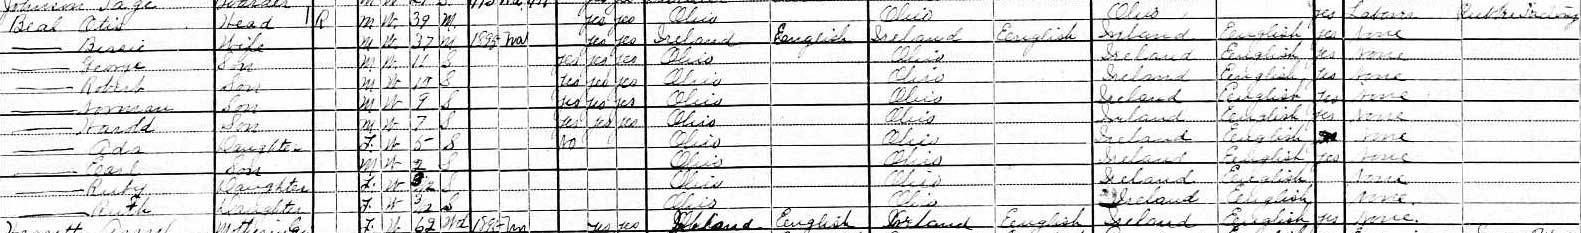 Johnson Page Boarder M W S
Beal Otis Head R M W 39 M yes yes Ohio Ohio Ohio yes Labour
—— Bessie Wife M W 37 M 1895 Na yes yes Ireland English Ireland English Ireland English yes None
—— George Son M W 11 S yes yes yes Ohio Ohio Ireland English yes None
—— Robert Son M W 10 S yes yes yes Ohio Ohio Ireland English yes None
—— Norman Son M W 9 S yes yes yes Ohio Ohio Ireland English yes None
—— Harold Son M W 7 S yes yes yes Ohio Ohio Ireland English yes None
—— Ada Daughter F W 5 S No Ohio Ohio Ireland English None
—— Earl Son M W 2 S Ohio Ohio Ireland English yes None
—— Ruby Daughter F W /12 S Ohio Ohio Ireland English None
—— Ruth Daughter F W 3/12 S Ohio Ohio Ireland English None
Mother in law F W 62 Wd 1895 Na yes yes Ireland English Ireland English Ireland English yes None.